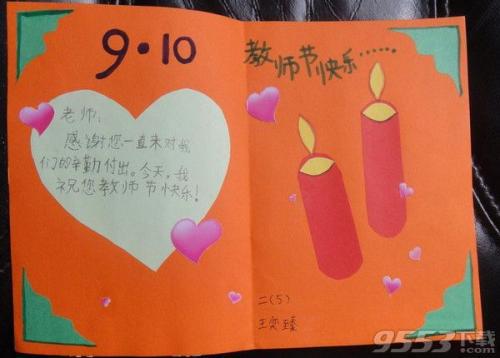 9·10
老师:
感谢您一直来对我
们的辛勤付出。今天,我
祝您教师节快乐!
教师节快乐……
二(5)
王奕臻
9553下载
.com